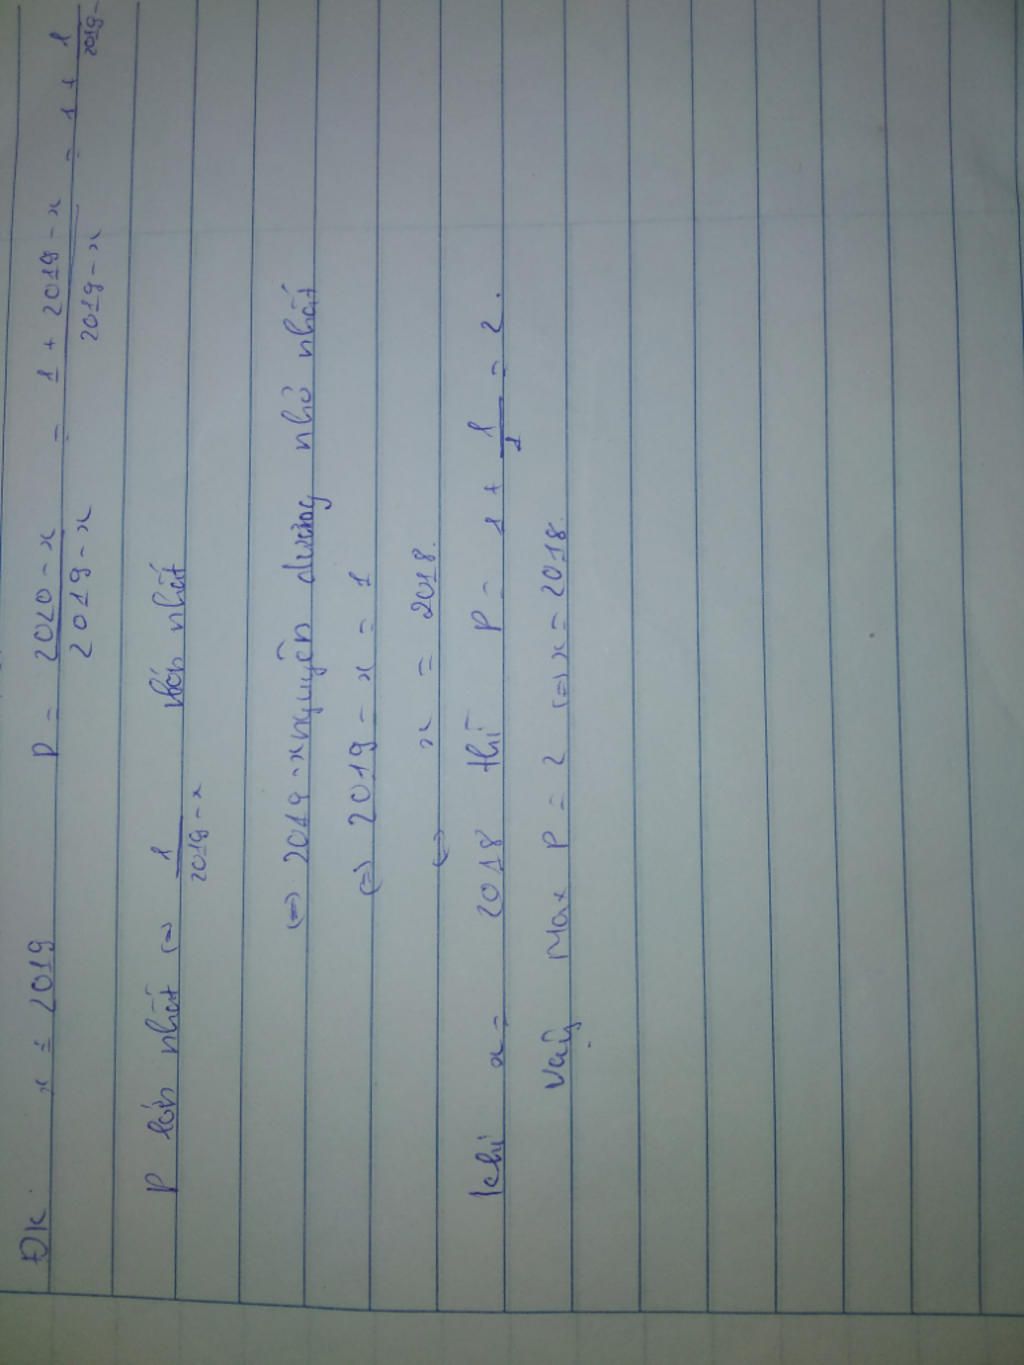 ĐK x ≠ 2019 P = 2020 - x / 2019 - x = 1 + 2019 - x / 2019 - x = 1 + 1 / 2019 -
P lớn nhất (=) 1 / 2019 - x lớn nhất
(=) 2019 - x nguyên dương nhỏ nhất
(=) 2019 - x = 1
(=) x = 2018.
khi x = 2018 thì P = 1 + 1 / 1 = 2.
Vậy Max P = 2 (=) x = 2018.